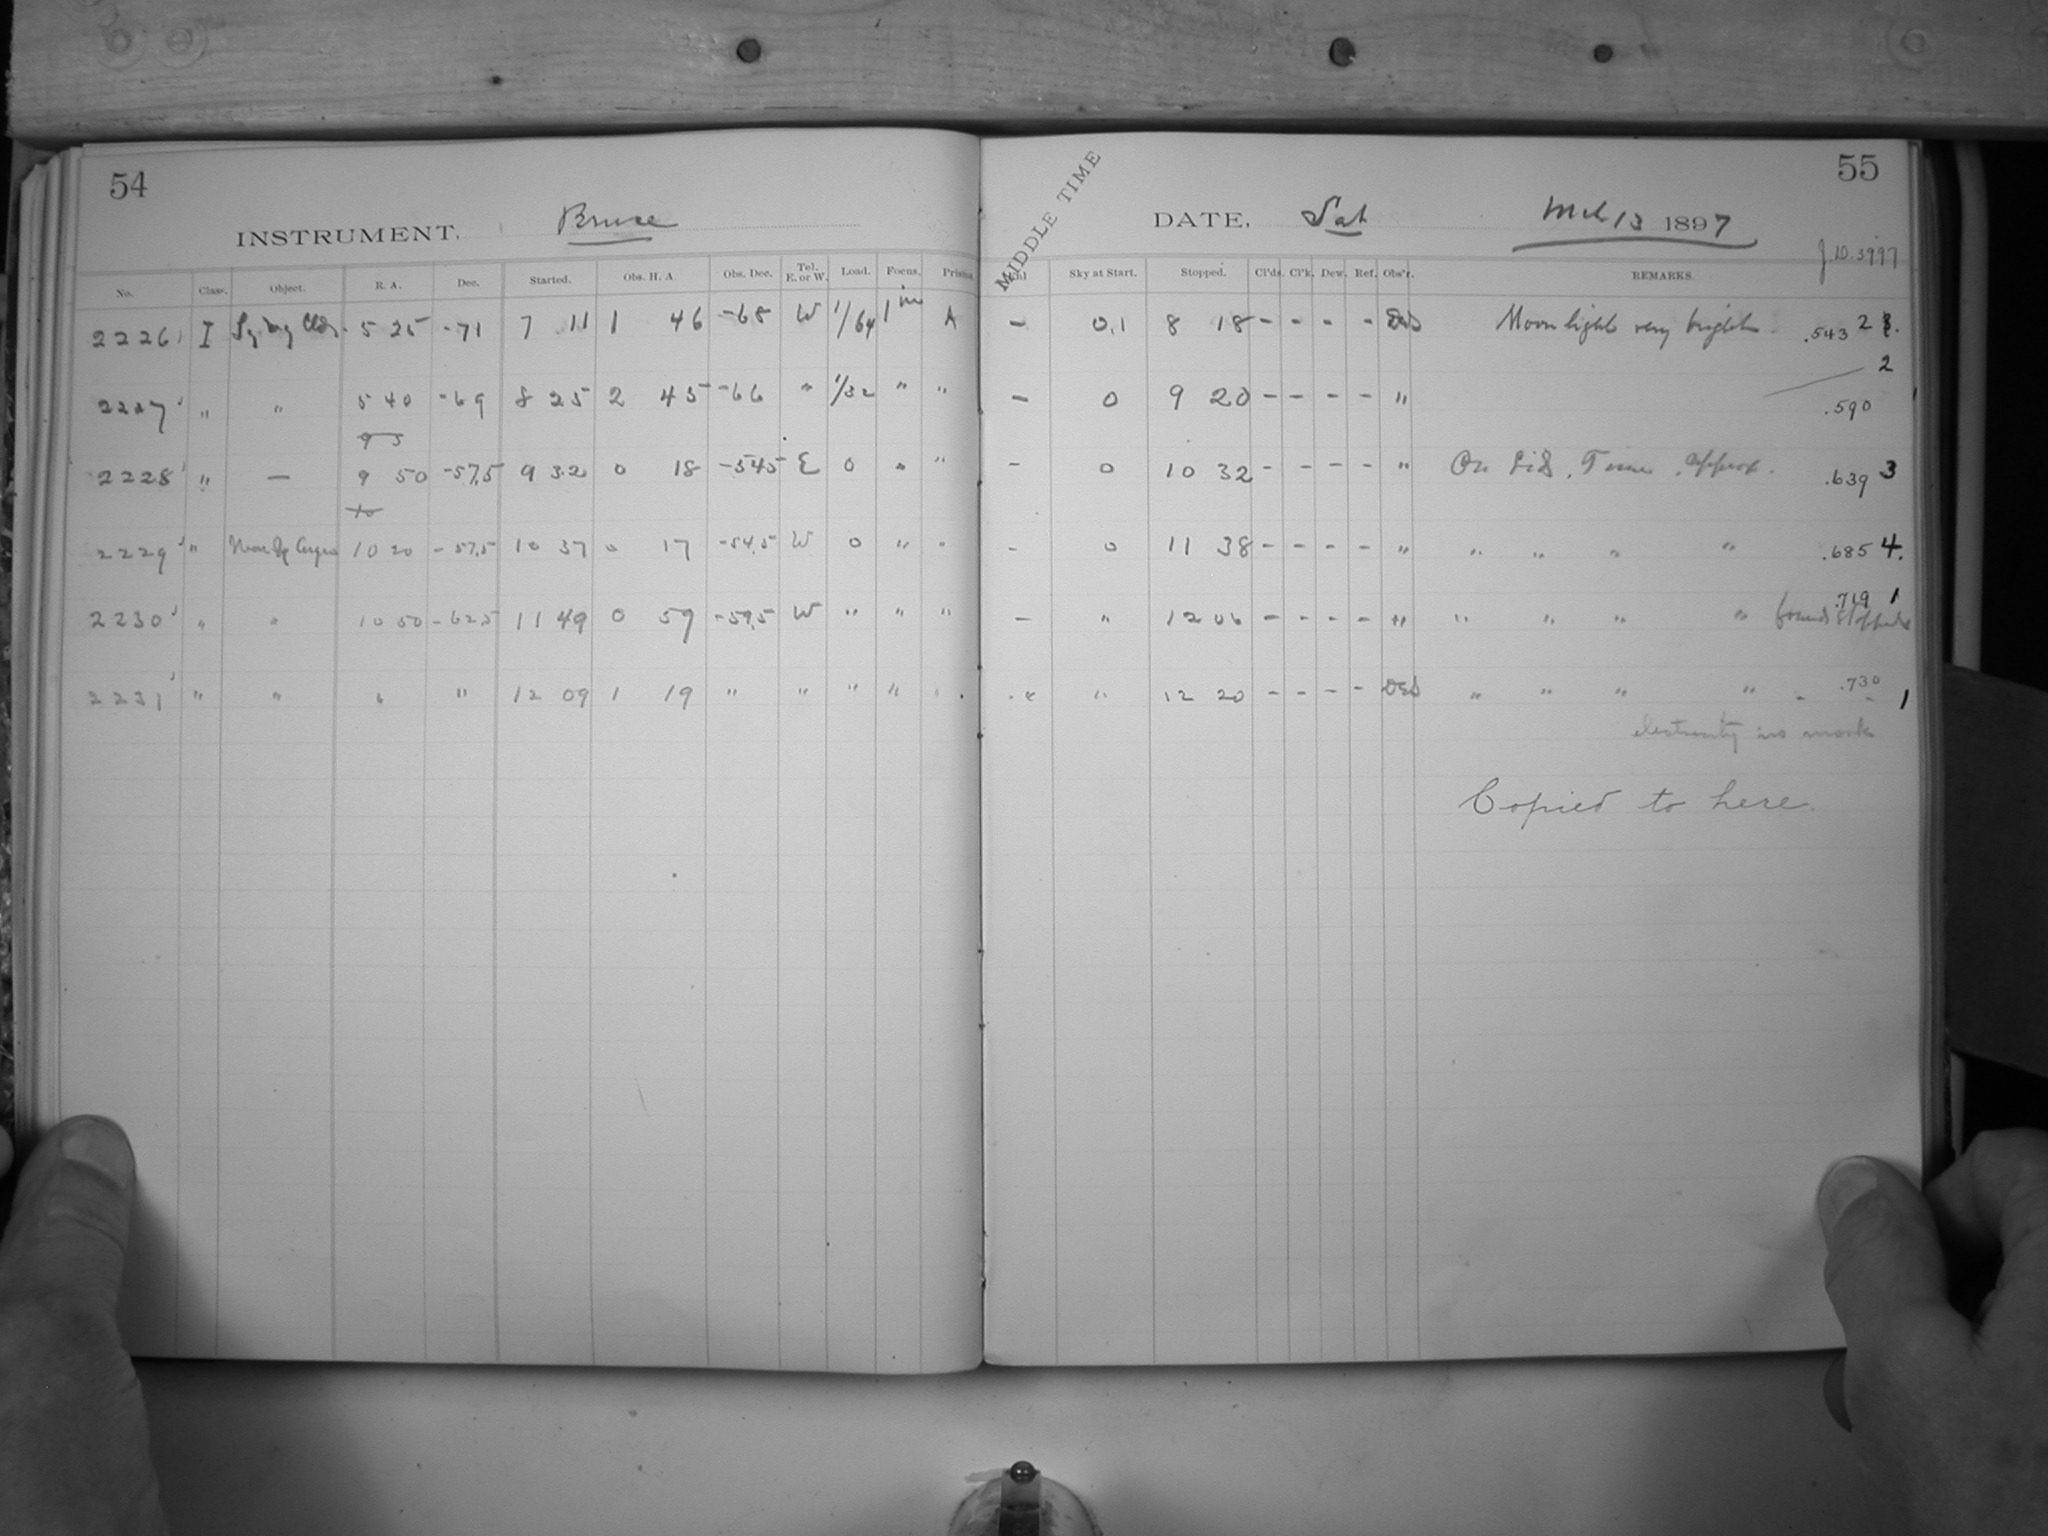 54
INSTRUMENT, Bruce
No. Class. Object. R. A. Dec. Started. Obs. H. A. Obs. Dec. Tel. E. or W. Load. Focus. Prisms.
2226 I 5 25 -71 7 11 1 46 -68 W 1/64 1 in A
2227 " " 5 40 -69 8 25 2 45 -66 " 1/32 " "
9 5
2228 " — 9 50 -57.5 9 32 0 18 -54.5 E 0 " "
10
2229 " Near 10 20 -57.5 10 37 0 17 -54.5 W 0 " "
2230 " " 10 50 -62.5 11 49 0 59 -59.5 W " " "
2231 " " " " 12 09 1 19 " " " "
MIDDLE TIME
55
DATE, Sat Mch 13 1897
J.D. 3997
Sky at Start. Stopped. Cl'ds. Cl'k. Dew. Ref. Obs'r. REMARKS.
– 0,1 8 18 - - - - Moonlight very bright. .543 2
2
– 0 9 20 - - - - " .590
- 0 10 32 - - - - " On Sid. Time approx. .639 3
- 0 11 38 - - - - " " " " " .685 4.
.719 1
– " 12 06 - - - - " " " " " found stopped
" " 12 20 - - - - " " " " - - .730 1
electricity no mark
Copied to here.